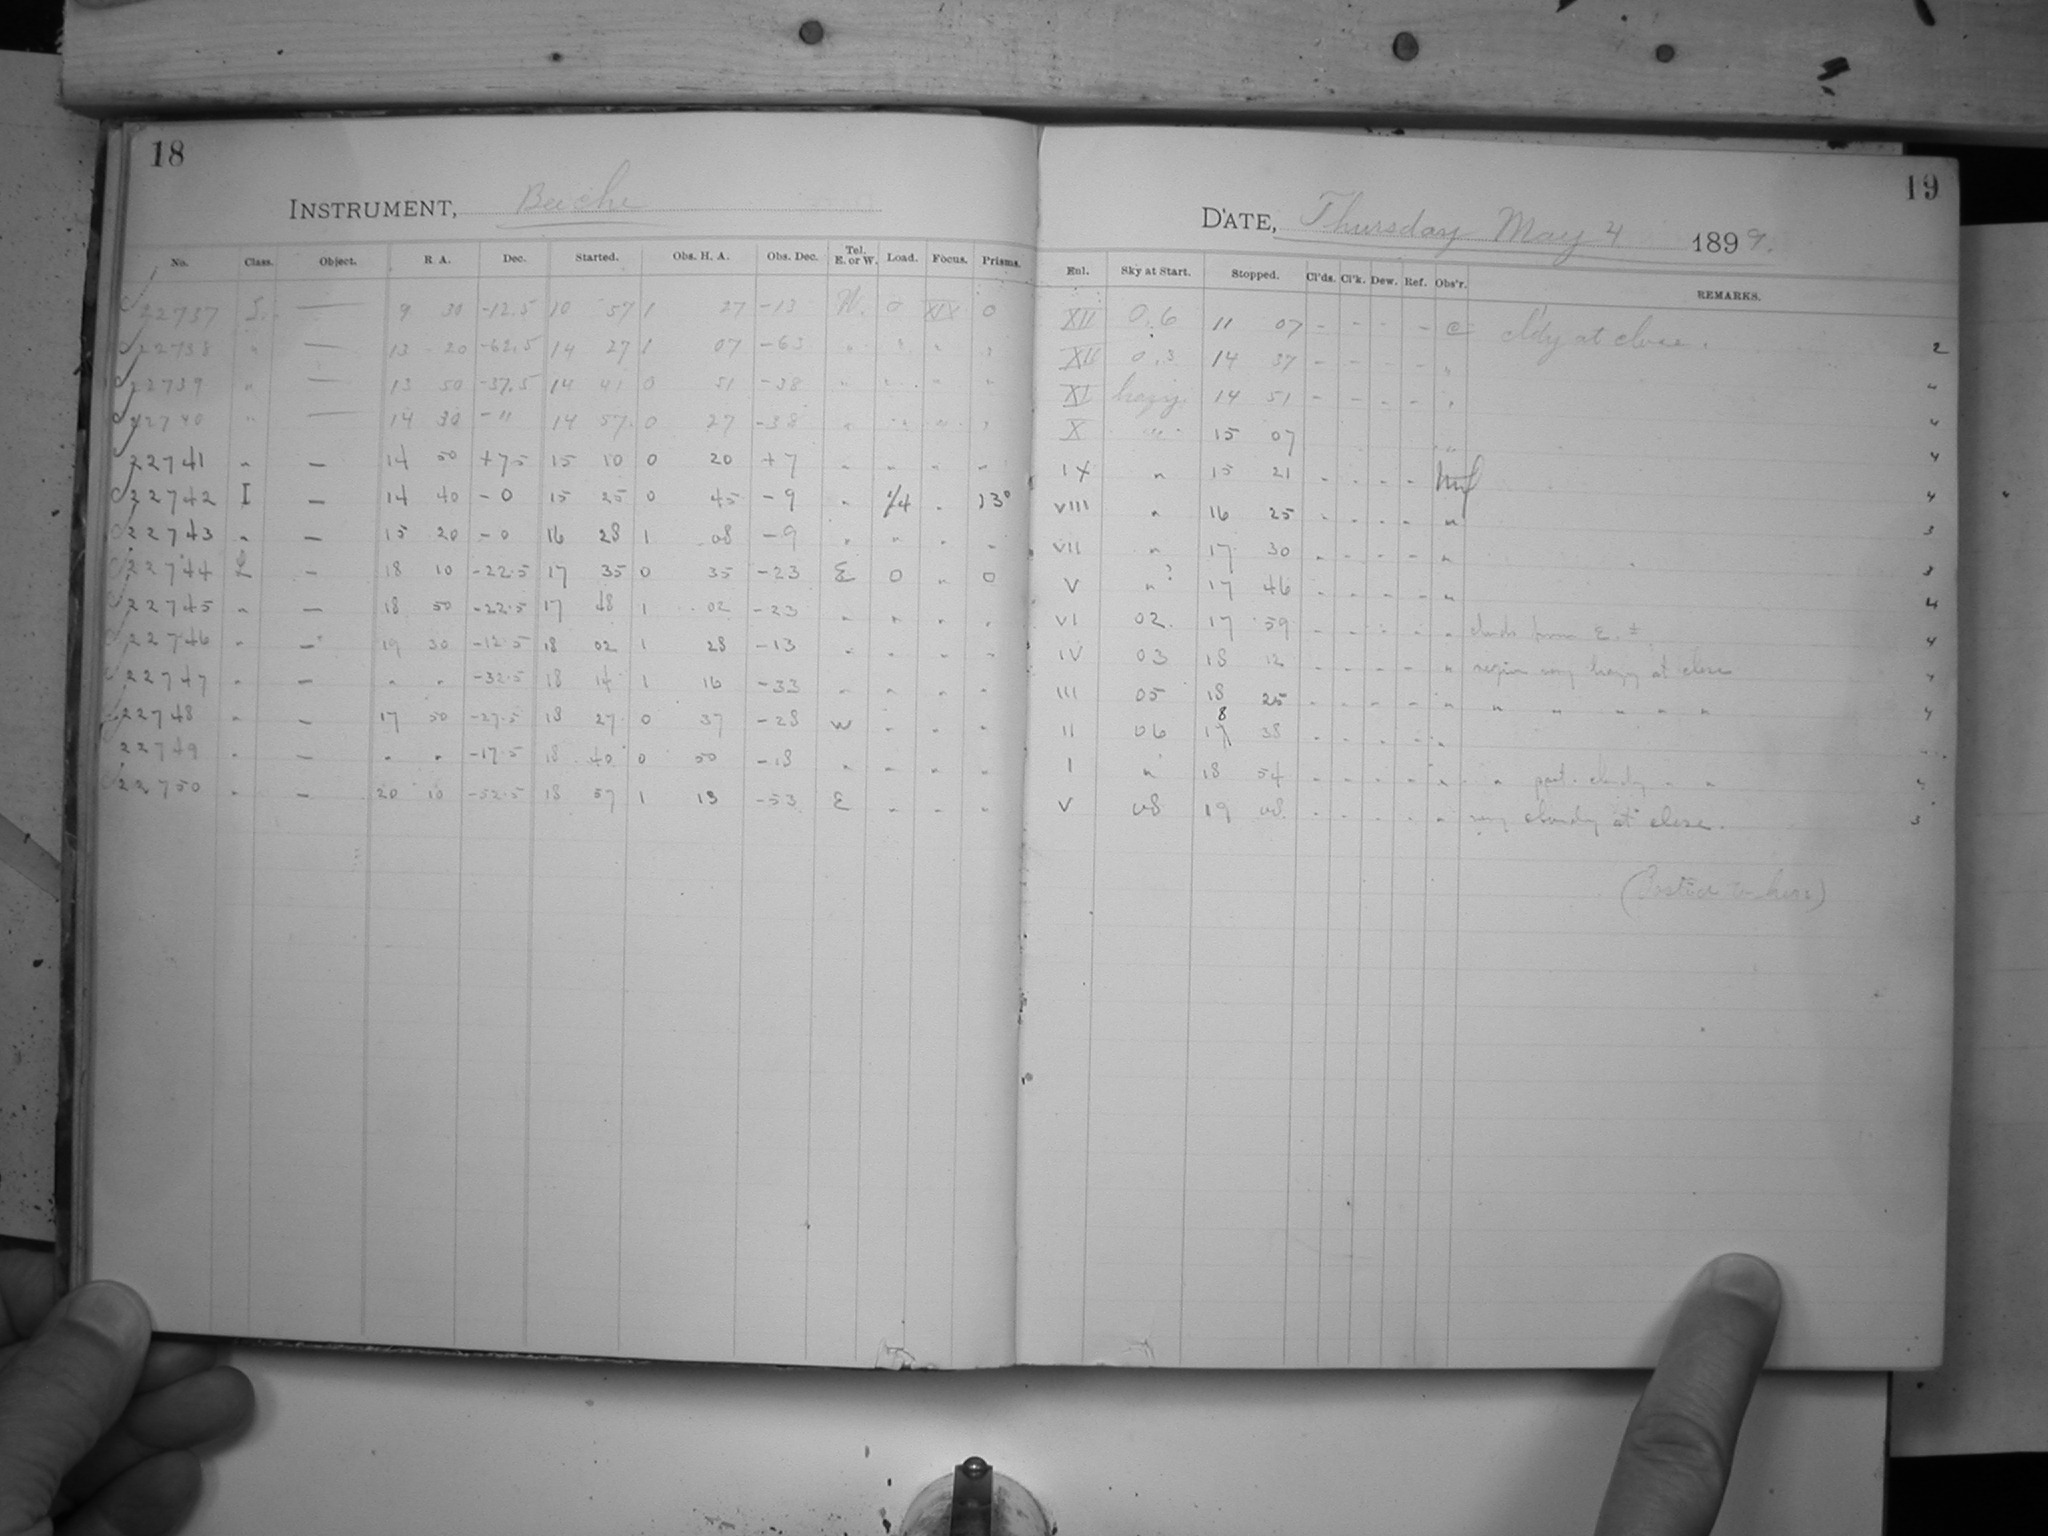 18
INSTRUMENT, Bache
No. Class. Object. R. A. Dec. Started. Obs. H. A. Obs. Dec. Tel. E. or W. Load. Focus. Prisms.
22737 L. — 9 30 -12.5 10 57 1 27 -13 W. 0 XIX 0
22738 " — 13 20 -62.5 14 27 1 07 -63 " " " "
22739 " — 13 50 -37.5 14 41 0 51 -38 " " " "
22740 " — 14 30 - " 14 57 0 27 -38 " " " "
22741 " — 14 50 +7.5 15 10 0 20 +7 " " " "
22742 I — 14 40 -0 15 25 0 45 -9 " 1/4 " 13°
22743 " — 15 20 -0 16 28 1 08 -9 " " " "
22744 L — 18 10 -22.5 17 35 0 35 -23 E 0 " 0
22745 " — 18 50 -22.5 17 48 1 02 -23 " " " "
22746 " — 19 30 -12.5 18 02 1 28 -13 " " " "
22747 " — " " -32.5 18 14 1 16 -33 " " " "
22748 " — 17 50 -27.5 18 27 0 37 -28 W " " "
22749 " — " " -17.5 18 40 0 50 -18 " " " "
22750 " — 20 10 -52.5 18 57 1 13 -53 E " " "
19
DATE, Thursday May 4 1899.
Enl. Sky at Start. Stopped. Cl'ds. Cl'k. Dew. Ref. Obs'r. REMARKS.
XII 0.6 11 07 - - - - C cl'dy at close. 2
XII 0.3 14 37 - - - - " 4
XI hazy 14 51 - - - - " 4
X " 15 07 " 4
IX " 15 21 - - - - 4
VIII " 16 25 - - - - " 3
VII " 17 30 - - - - " 3
V " ? 17 46 - - - - " 4
VI 02. 17 59 - - - - " clouds from E. ± 4
IV 03 18 12 - - - - " region very hazy at close 4
III 05 18 25 - - - - " " " " " " 4
II 06 18 38 - - - - "
I " 18 54 - - - - " " part. cloudy " "
V 08 19 08 - - - - " very cloudy at close. 3
(Posted to here)